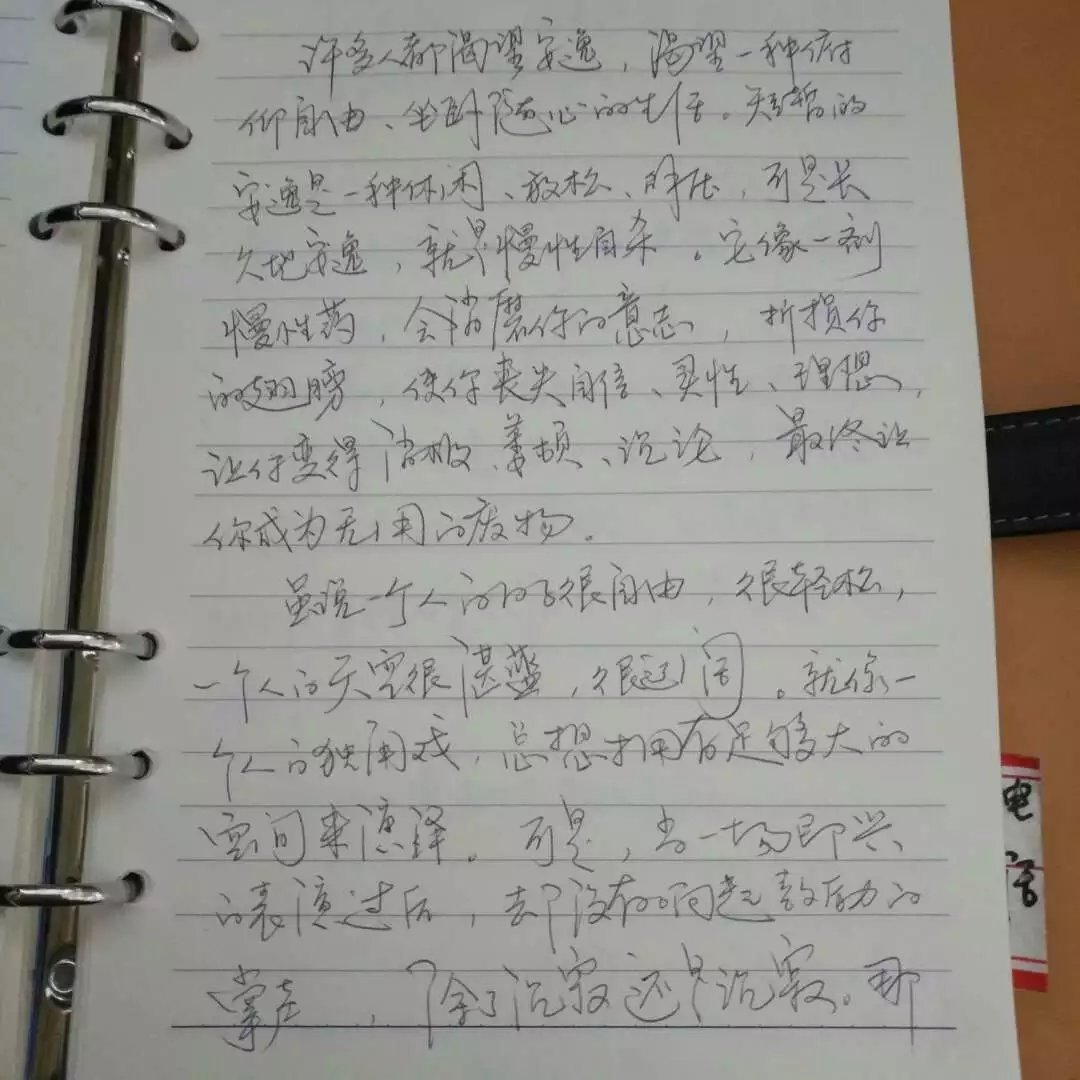 许多人都渴望安逸，渴望一种俯
仰自由、坐卧随心的生活。短暂的
安逸是一种休闲、放松、解压，可是长
久地安逸，就是慢性自杀。它像一剂
慢性药，会消磨你的意志，折损你
的翅膀，使你丧失自信、灵性、理想，
让你变得消极、萎顿、沉沦，最终让
你成为无用的废物。
虽说一个人的日子很自由，很轻松，
一个人的天空很湛蓝，很辽阔。就像一
个人的独角戏，总想拥有足够大的
空间来演绎。可是，当一场即兴
的表演过后，却没有响起鼓励的
掌声，除了沉寂还是沉寂。那
电
话